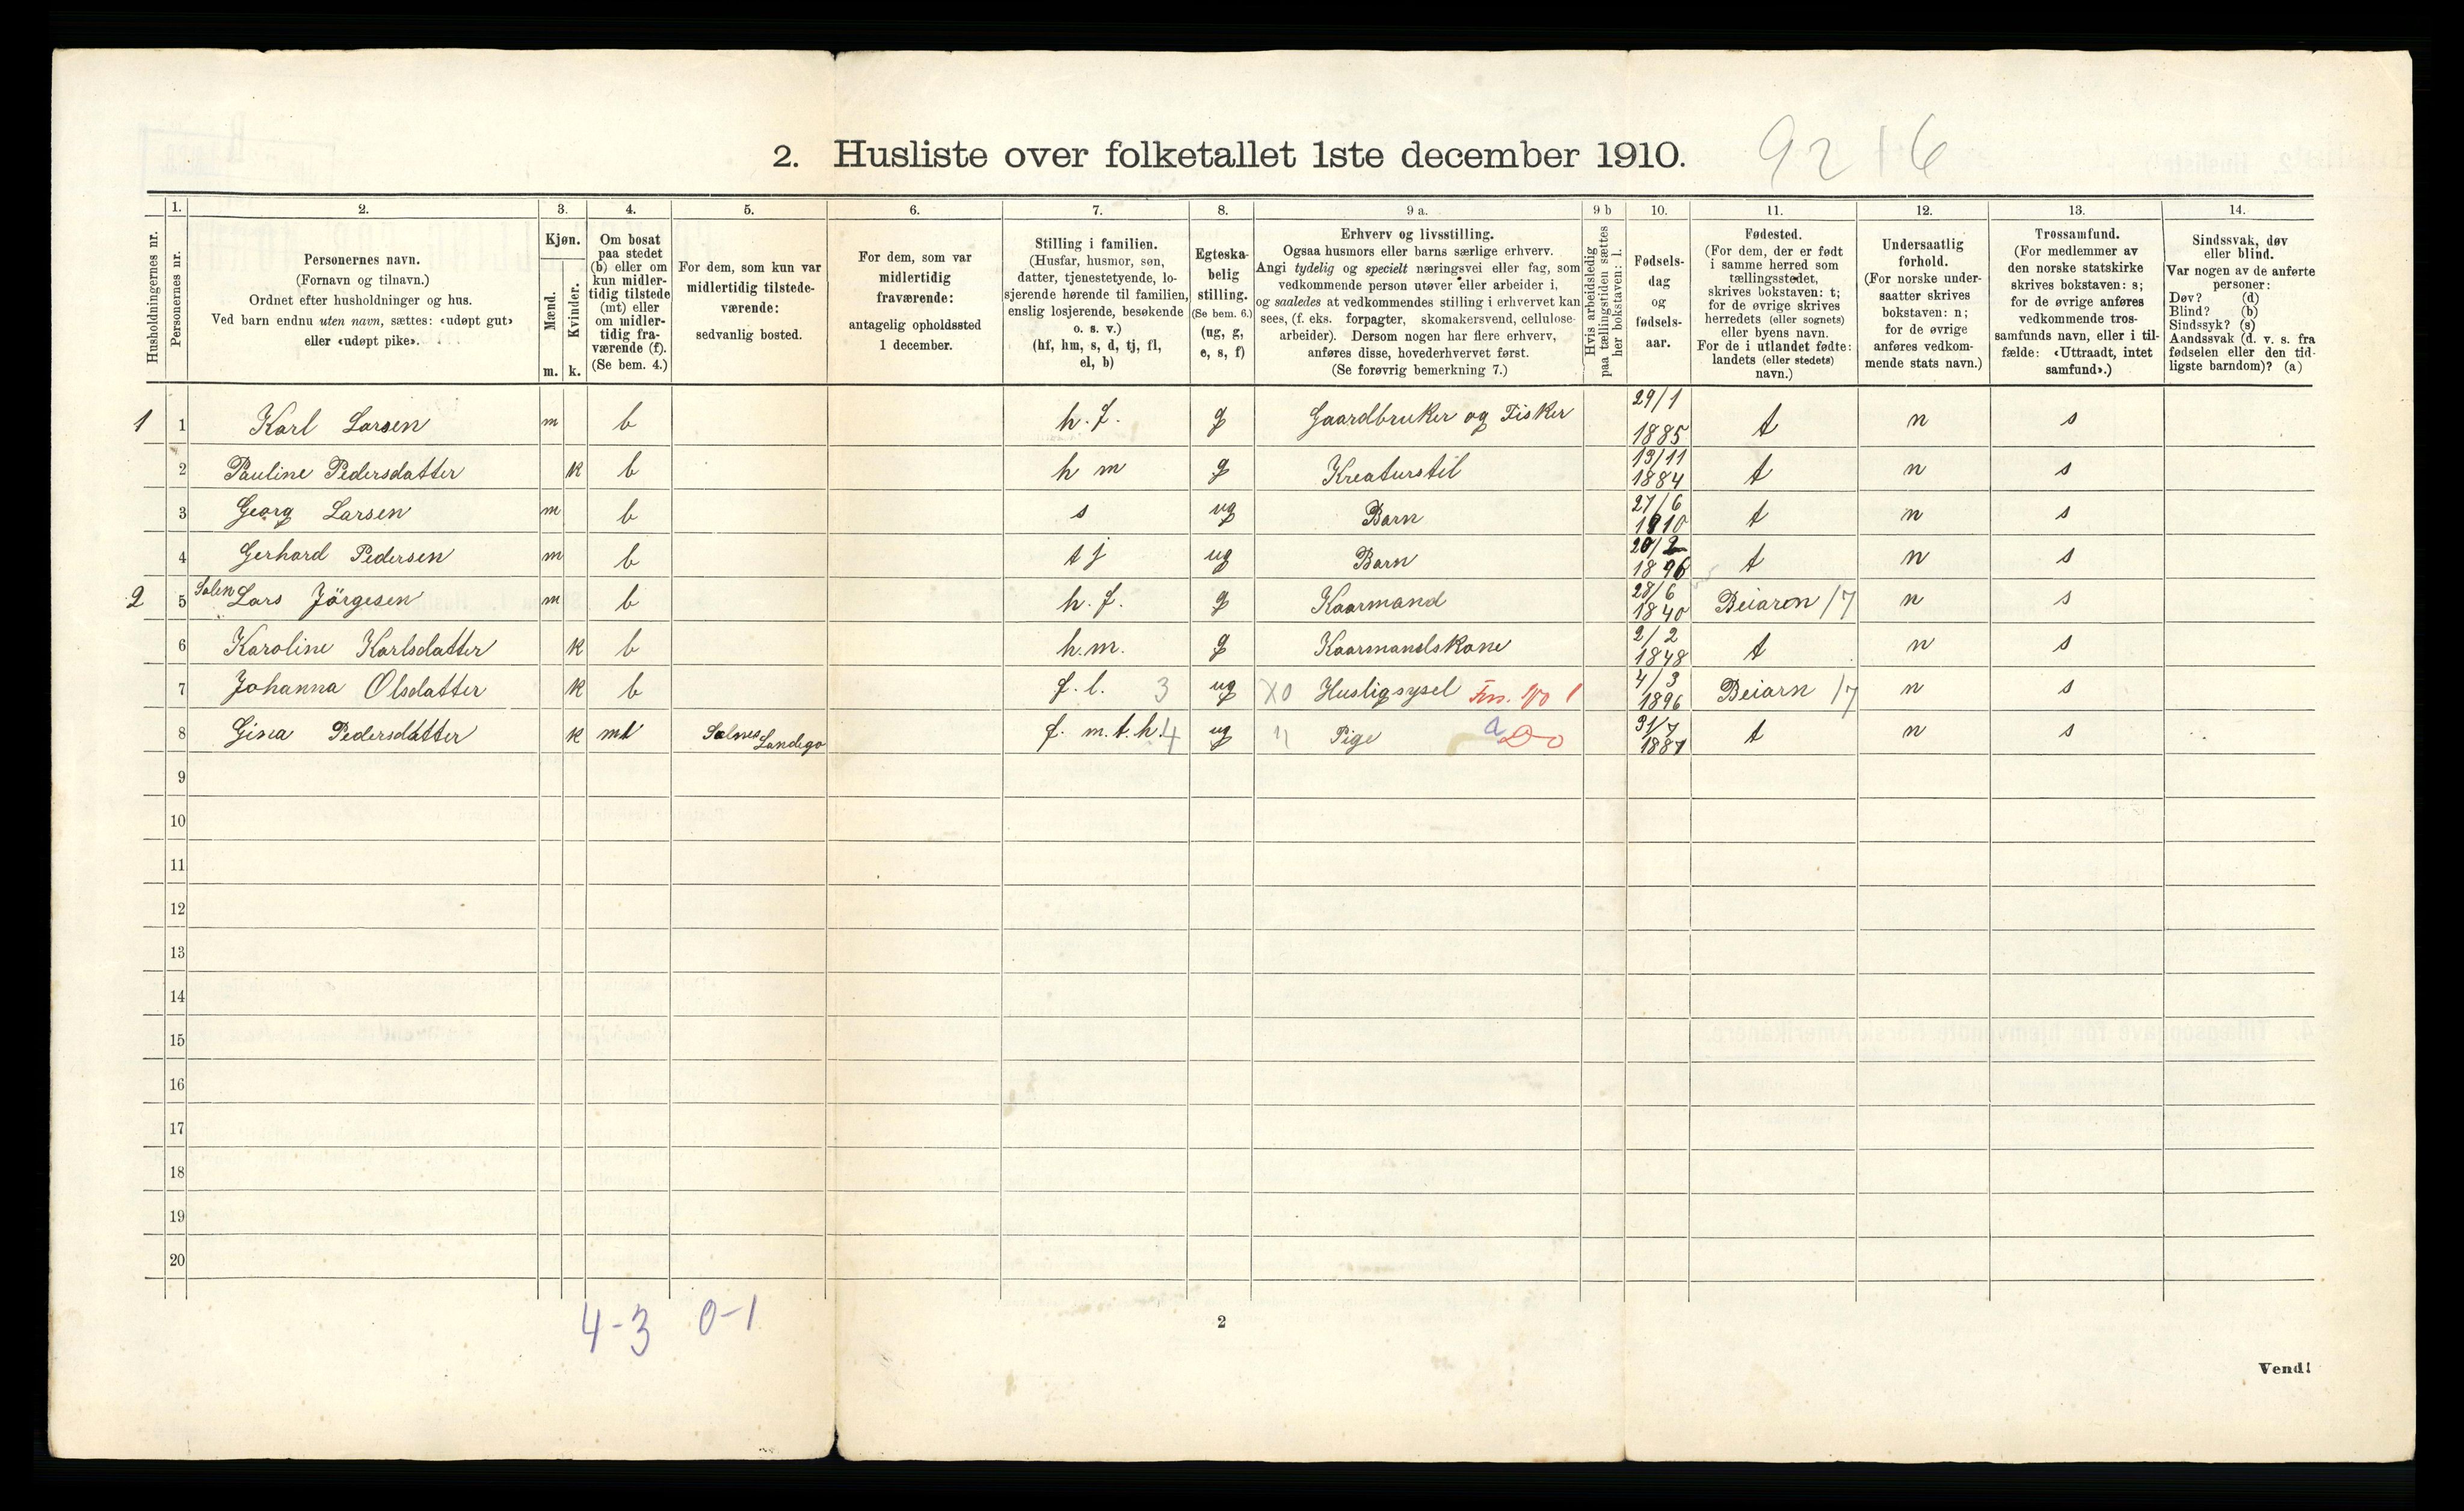 2. Husliste over folketallet 1ste december 1910.
9216
Husholdningernes nr.
1. Personernes nr.
2. Personernes navn.
(Fornavn og tilnavn.)
Ordnet efter husholdninger og hus.
Ved barn endnu uten navn, sættes: «udøpt gut»
eller «udøpt pike».
3. Kjøn.
Mænd. Kvinder.
m. k.
4. Om bosat
paa stedet
(b) eller om
kun midler-
tidig tilstede
(mt) eller
om midler-
tidig fra-
værende (f).
(Se bem. 4.)
5. For dem, som kun var
midlertidig tilstede-
værende:
sedvanlig bosted.
6. For dem, som var
midlertidig
fraværende:
antagelig opholdssted
1 december.
7. Stilling i familien.
(Husfar, husmor, søn,
datter, tjenestetyende, lo-
sjerende hørende til familien,
enslig losjerende, besøkende
o. s. v.)
(hf, hm, s, d, tj, fl,
el, b)
8. Egteska-
belig
stilling.
(Se bem. 6.)
(ug, g,
e, s, f)
9 a. Erhverv og livsstilling.
Ogsaa husmors eller barns særlige erhverv.
Angi tydelig og specielt næringsvei eller fag, som
vedkommende person utøver eller arbeider i,
og saaledes at vedkommendes stilling i erhvervet kan
sees, (f. eks. forpagter, skomakersvend, cellulose-
arbeider). Dersom nogen har flere erhverv,
anføres disse, hovederhvervet først.
(Se forøvrig bemerkning 7.)
9 b Hvis arbeidsledig
paa tællingstiden sættes
her bokstaven: l.
10. Fødsels-
dag
og
fødsels-
aar.
11. Fødested.
(For dem, der er født
i samme herred som
tællingsstedet,
skrives bokstaven: t;
for de øvrige skrives
herredets (eller sognets)
eller byens navn.
For de i utlandet fødte:
landets (eller stedets)
navn.)
12. Undersaatlig
forhold.
(For norske under-
saatter skrives
bokstaven: n;
for de øvrige
anføres vedkom-
mende stats navn.)
13. Trossamfund.
(For medlemmer av
den norske statskirke
skrives bokstaven: s;
for de øvrige anføres
vedkommende tros-
samfunds navn, eller i til-
fælde: «Uttraadt, intet
samfund».)
14. Sindssvak, døv
eller blind.
Var nogen av de anførte
personer:
Døv? (d)
Blind? (b)
Sindssyk? (s)
Aandssvak (d. v. s. fra
fødselen eller den tid-
ligste barndom)? (a)
1 1 Karl Larsen m b h.f. g Gaardbruker og Fisker 29/1 1885 t n s
2 Pauline Pedersdatter k b h m g Kreaturstil 13/11 1884 t n s
3 Georg Larsen m b s ug Barn 27/6 1910 t n s
4 Gerhard Pedersen m b tj ug Barn 20/2 1896 t n s
2 5 Lars Jörgesen m b h.f. g Kaarmand 28/6 1840 Beiaren /7 n s
6 Karoline Karlsdatter k b h.m. g Kaarmandskone 2/2 1848 t n s
7 Johanna Olsdatter k b f.l. 3 ug X0 Husligsysel 4/3 1896 Beiarn /7 n s
8 Gina Pedersdatter k mt Landego f. m.t.h. 4 ug " Pige a Do 31/7 1887 t n s
9
10
11
12
13
14
15
16
17
18
19
20
4-3 0-1
2
Vend!